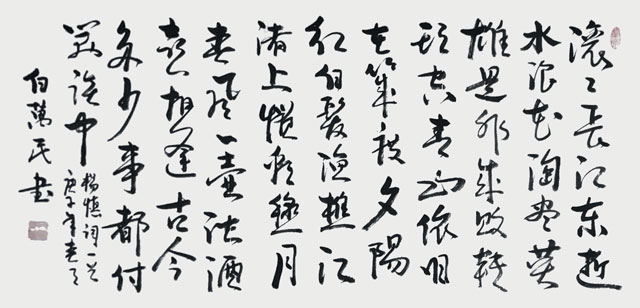 滚〻長江东逝
水浪花淘尽英
雄是非成败转
頭空青山依旧
在幾度夕陽
红白髮渔樵江
渚上惯看秋月
春风一壶浊酒
喜相逢古今
多少事都付
笑谈中
楊慎词一首
庚子年
白萬民书